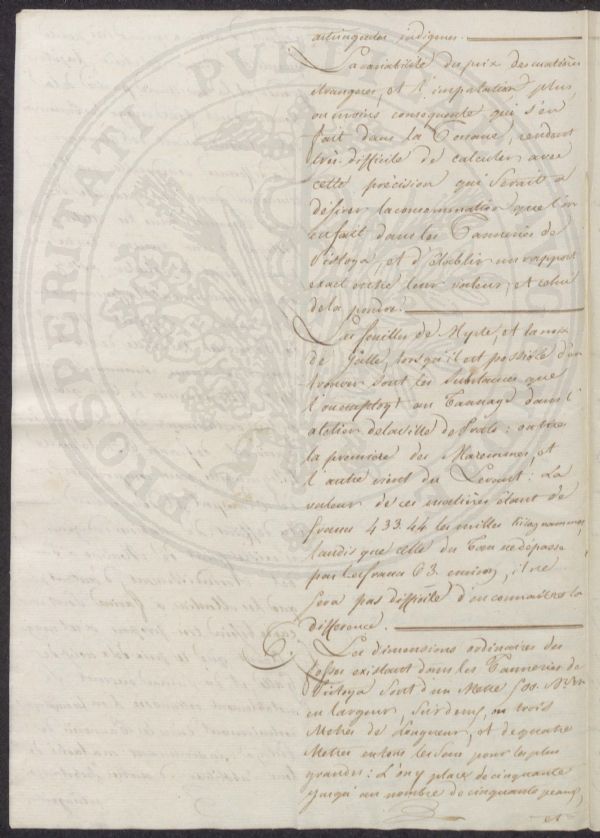 astringentes indigenes.
La variabilité du prix des matières
étrangeres, et l'importation plus,
ou moins consequente qui s'en
fait dans la Toscane, rendent
très difficile de calculer avec
cette précision qui serait a
désirer la consommation que l'on
en fait dans les Tanneries de
Pistoja, et d'établir un rapport
exact entre leur valeur, et celui
de la poudre.
Les feuilles de Myrte, et la noix
de Galle, lorsqu'il est possible d'en
trouver sont les substances que
l'on employt au Tannage dans l'
atelier de la Ville de Prato:
la premiere des Maremmes, et
l'autre vient du Levant: La
valeur de ces matières étant de
francs 433.44 les milles kilogrammes,
tandis que celle du Tan ne dépasse
pas les francs 63. environ, il ne
sera pas difficile d'en connaitre la
difference.
6. Les dimensions ordinaires des
fosses existant dans les Tanneries de
Pistoja sont d'un Metre
en largeur, sur deux, ou trois
Metres de Longueur, et de quatre
Metres en tous les sens pour les plus
grandes: L'on y place de cinquante
jusqu'au nombre de cinquante peaux,
et
PROSPERITATI PVBLICAE